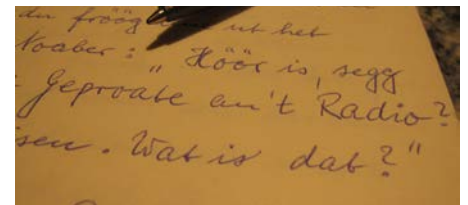 du fröög ut het
Noaber: "Höör is, segg
Geproate an't Radio?
sen. Wat is dat?"